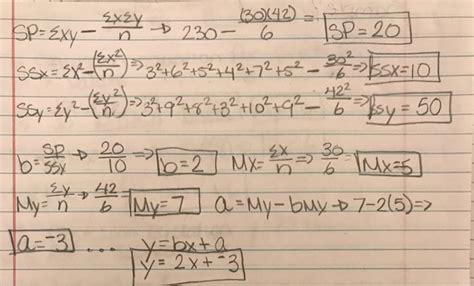 SP = Σxy − ΣxΣy/n → 230 − (30)(42)/6 = SP = 20
SSx = Σx² − (Σx²/n) ⇒ 3² + 6² + 5² + 4² + 7² + 5² − 30²/6 ⇒ SSx = 10
SSy = Σy² − (Σy²/n) ⇒ 3² + 9² + 8² + 3² + 10² + 9² − 42²/6 ⇒ SSy = 50
b = SP/SSx → 20/10 ⇒ b = 2 Mx = Σx/n ⇒ 30/6 = Mx = 5
My = Σy/n → 42/6 = My = 7 a = My − bMy → 7 − 2(5) ⇒
a = −3 ... y = bx + a
y = 2x + −3